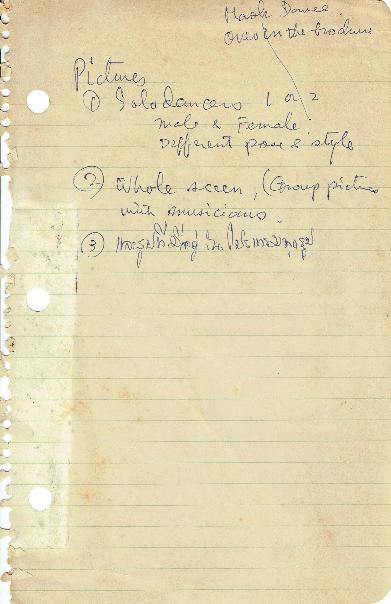 Mask Dance
over in the brochure
Pictures
① Solo dancers 1 or 2
male & Female
Different pose & style
② Whole sceen, (Group picture
with musicians.
③